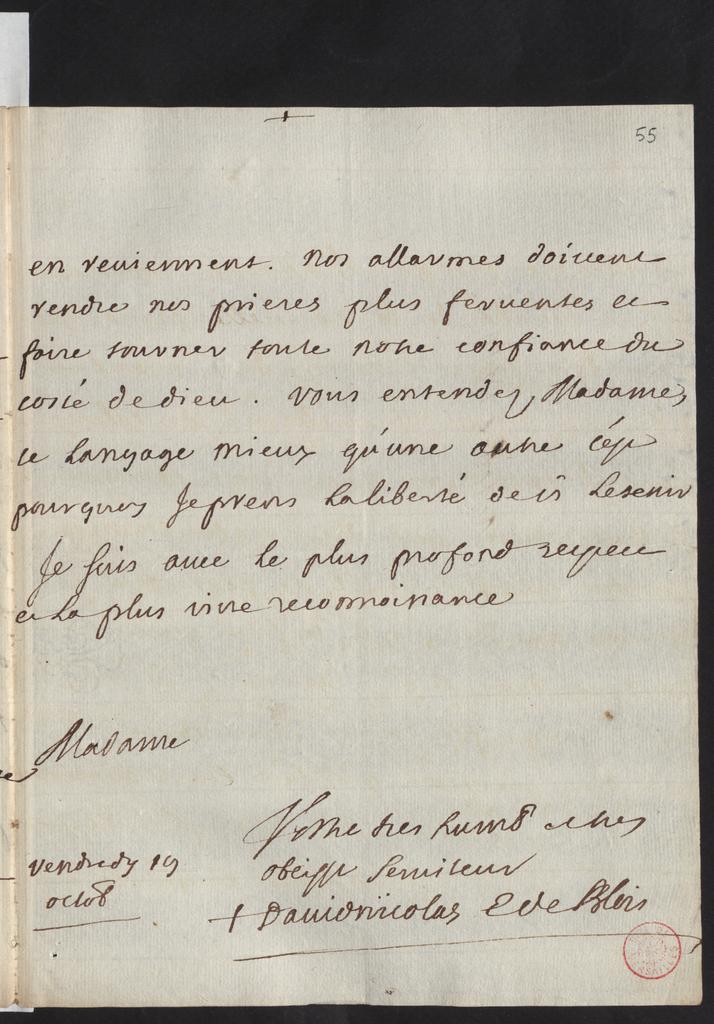 55
en reviennent. nos allarmes doivent
rendre nos prieres plus ferventes et
faire tourner toute notre confiance du
costé de dieu. vous entendez, Madame,
ce langage mieux qu'une autre c'est
pourquoy Je prens la liberté de
Je suis avec le plus profond respect
et la plus vive reconnoissance
Madame
Votre tres humb et tres
obeisst serviteur
+ David nicolas E de Blois
vendredy 19
octob